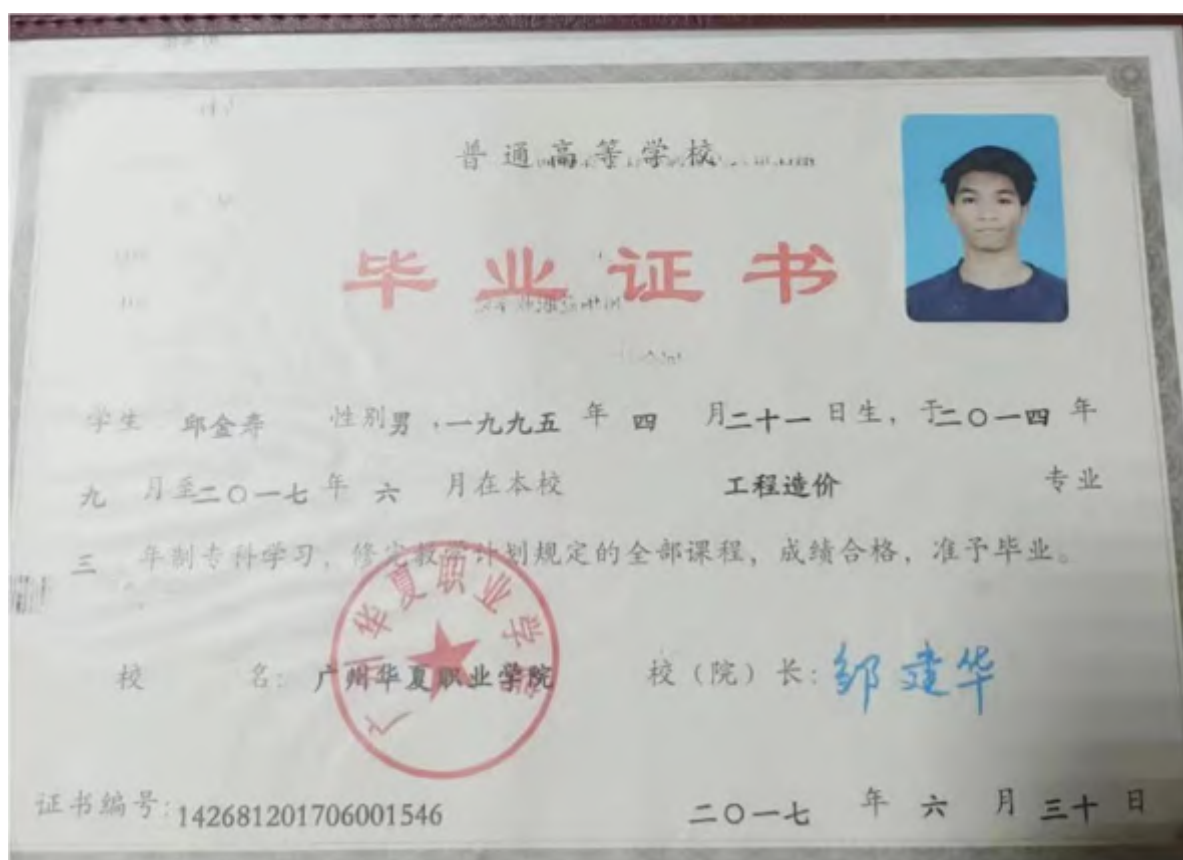 普通高等学校
毕业证书
学生 邱金寿 性别男，一九九五 年 四 月二十一 日生，于二〇一四 年
九 月至二〇一七 年 六 月在本校 工程造价 专业
三 年制专科学习，修完教学计划规定的全部课程，成绩合格，准予毕业。
广州华夏职业学院
校 名：广州华夏职业学院 校（院）长：邹建华
证书编号：142681201706001546 二〇一七 年 六 月 三十 日